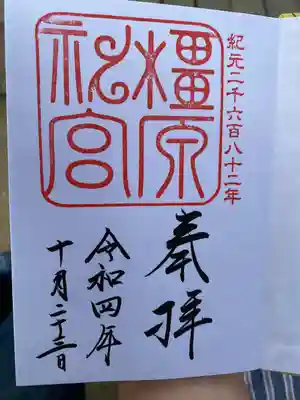 紀元二千六百八十二年
橿原神宮
奉拝
令和四年
十月二十三日